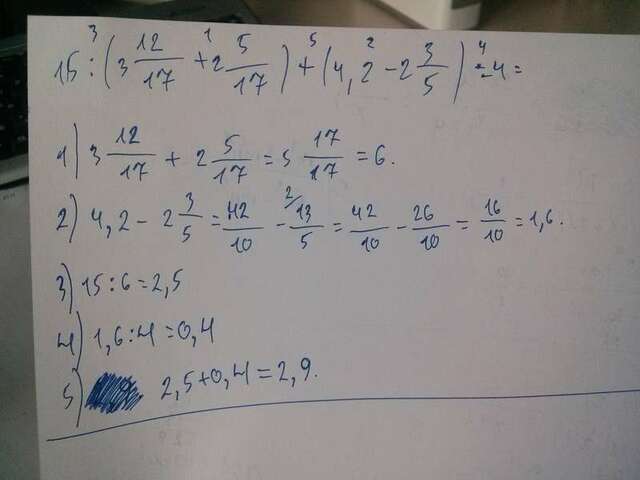 15 : (3 12/17 + 2 5/17) + (4,2 - 2 3/5) : 4 =
1) 3 12/17 + 2 5/17 = 5 17/17 = 6.
2) 4,2 - 2 3/5 = 42/10 - 13/5 = 42/10 - 26/10 = 16/10 = 1,6.
3) 15 : 6 = 2,5
4) 1,6 : 4 = 0,4
5) 2,5 + 0,4 = 2,9.